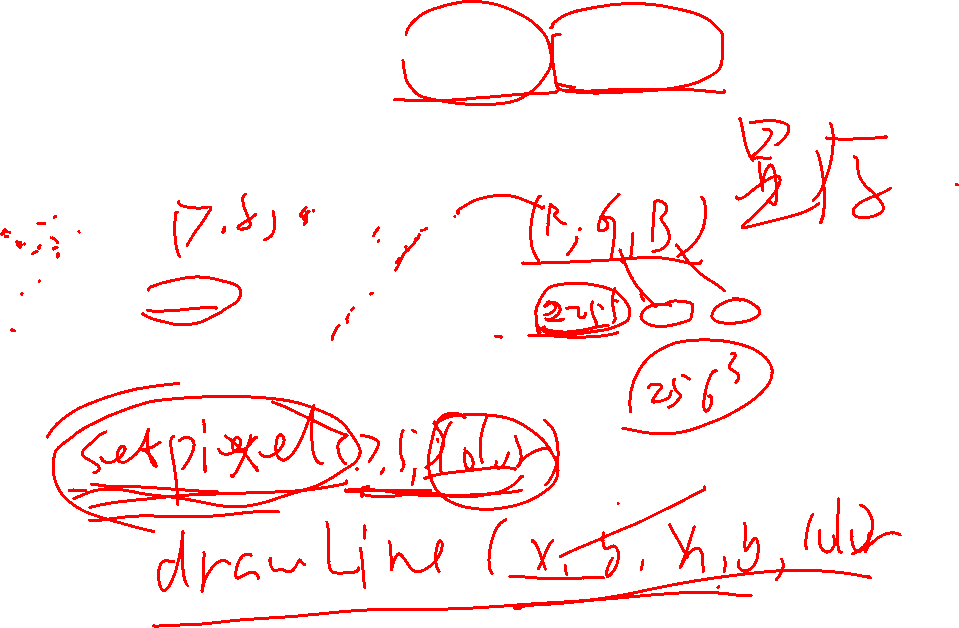 显存
(7,8,
(R,G,B)
2^5
256³
setpixel(7,5,color)
drawLine(x,y,x,y,color